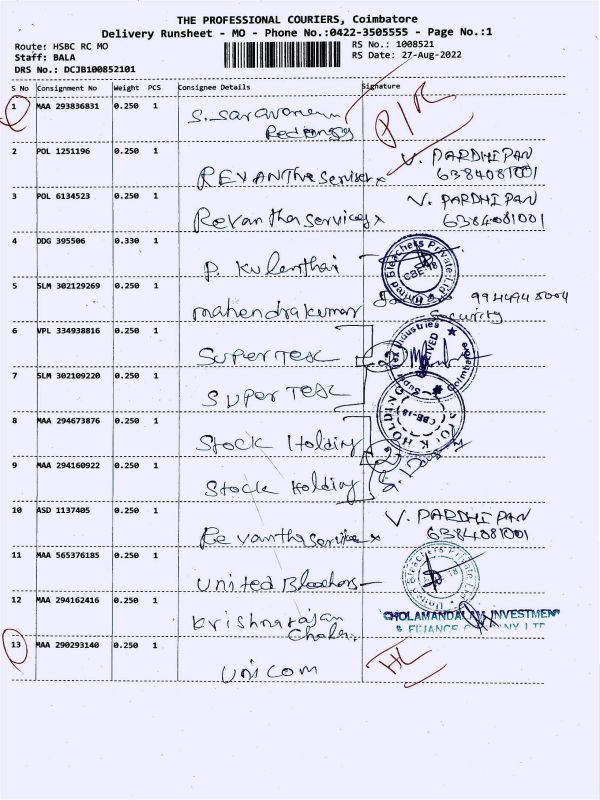 THE PROFESSIONAL COURIERS, Coimbatore
Delivery Runsheet - MO - Phone No.:0422-3505555 - Page No.:1
Route: HSBC RC MO
RS No.: 1008521
Staff: BALA
RS Date: 27-Aug-2022
DRS No.: DCJB100852101
S No Consignment No Weight PCS Consignee Details Signature
1 MAA 293836831 0.250 1
S. Saravanan
P/R
2 POL 1251196 0.250 1
REVANTha Services V. PARDHIPAN
6384081001
3 POL 6134523 0.250 1
Revantha services V. PARDHIPAN
6384081001
4 DDG 395506 0.330 1
P. Kulanthai
United Bleachers Private Ltd
CBE-18
5 SLM 302129269 0.250 1
mahendrakumar
Security
6 VPL 334938816 0.250 1
SUPER TEX
Industries
RECEIVED
Coimbatore
7 SLM 302109220 0.250 1
SUPER TEX
8 MAA 294673876 0.250 1
Stock Holding
STOCK HOLDING
CBE-18
9 MAA 294160922 0.250 1
Stock Holding
10 ASD 1137405 0.250 1
Revantha services V. PARDHIPAN
6384081001
11 MAA 565376185 0.250 1
United Bleachers
United Bleachers Private Ltd
12 MAA 294162416 0.250 1
Krishnarajan
Chola
CHOLAMANDALAM INVESTMENT
& FINANCE
13 MAA 290293140 0.250 1
UNICOM